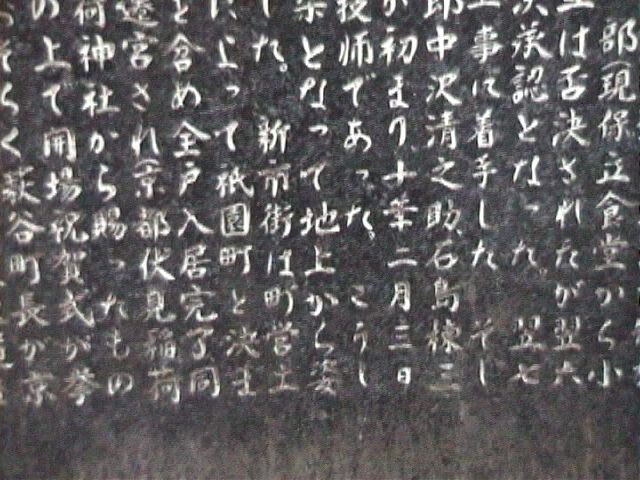 部(現保立食堂から小
は否決されたが翌六
承認となった。翌七
事に着手した そし
郎中沢清之助、石島棟三
が初まり十年二月三日
技師であった。こうし
となって地上から姿
した。新市街は町営土
によって祇園町と決ま
と含め全戸入居完了同
遷宮され(京都伏見稲荷
荷神社から賜ったもの
の上で開場祝賀式が挙
そらく萩谷町長が京